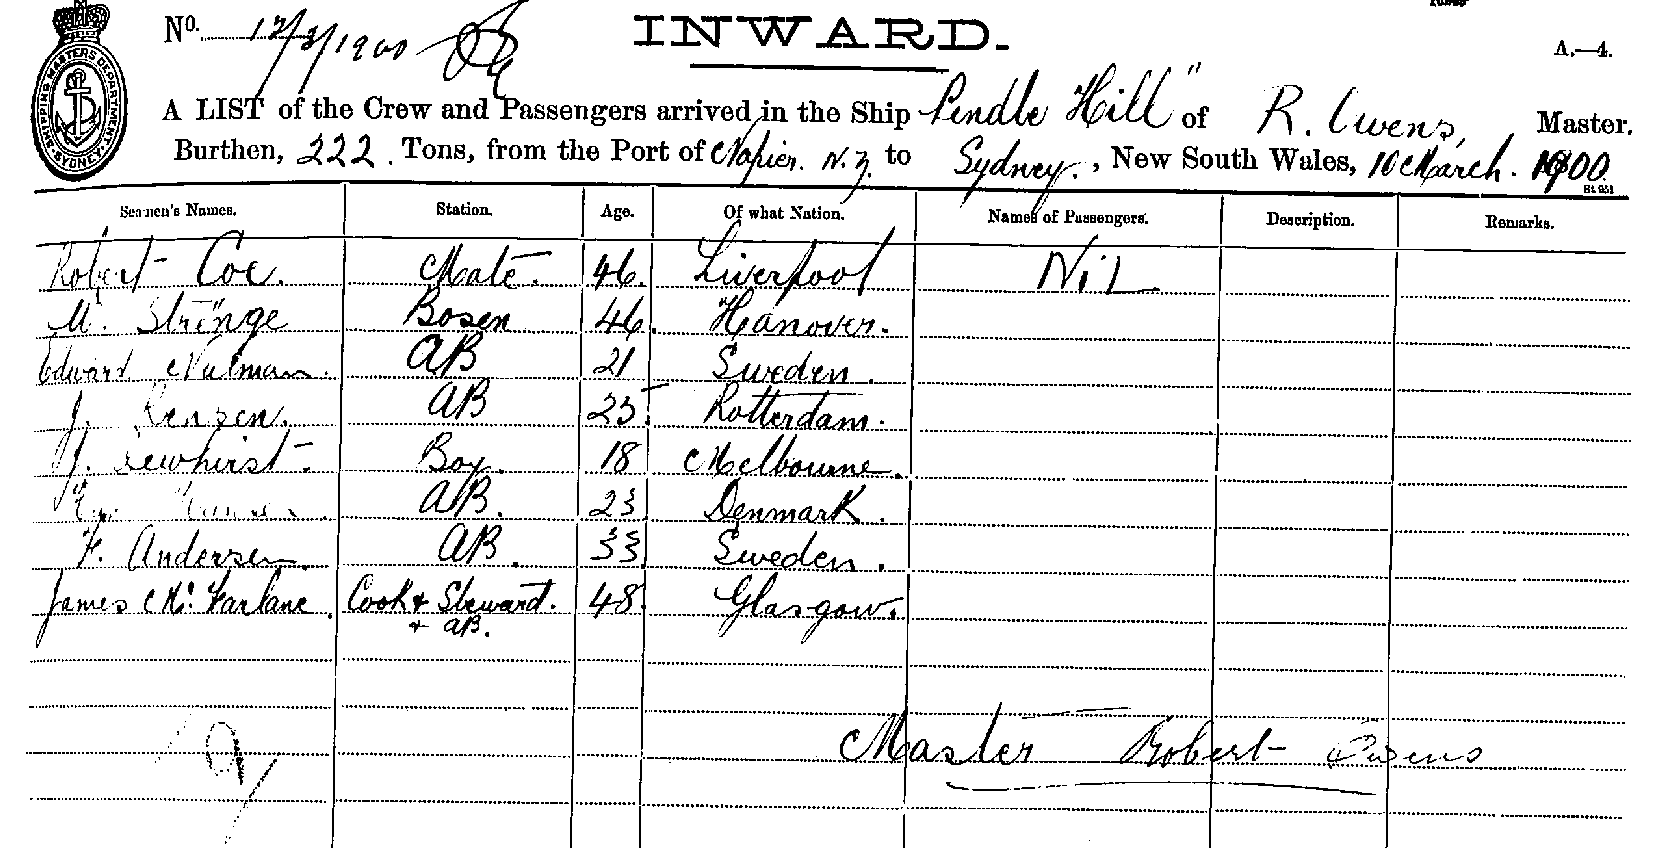 SHIPPING MASTERS DEPARTMENT. SYDNEY.
No. 12/3/1900
INWARD.
A.—4.
A LIST of the Crew and Passengers arrived in the Ship Pendle Hill" of R. Owens, Master.
Burthen, 222. Tons, from the Port of Napier. N.Z. to Sydney., New South Wales, 10 March. 1900.
Seamen's Names. Station. Age. Of what Nation. Names of Passengers. Description. Remarks.
Robert Coe. Mate. 46. Liverpool Nil
M. Stringe Bosen 46. Hanover.
Edward Nulman. AB 21 Sweden.
J. AB 25. Rotterdam.
J. Dewhirst. Boy. 18 Melbourne.
AB. 23 Denmark.
F. Andersen. AB. 33 Sweden.
James McFarlane. Cook & Steward. 48. Glasgow.
& AB.
Master Robert Owens